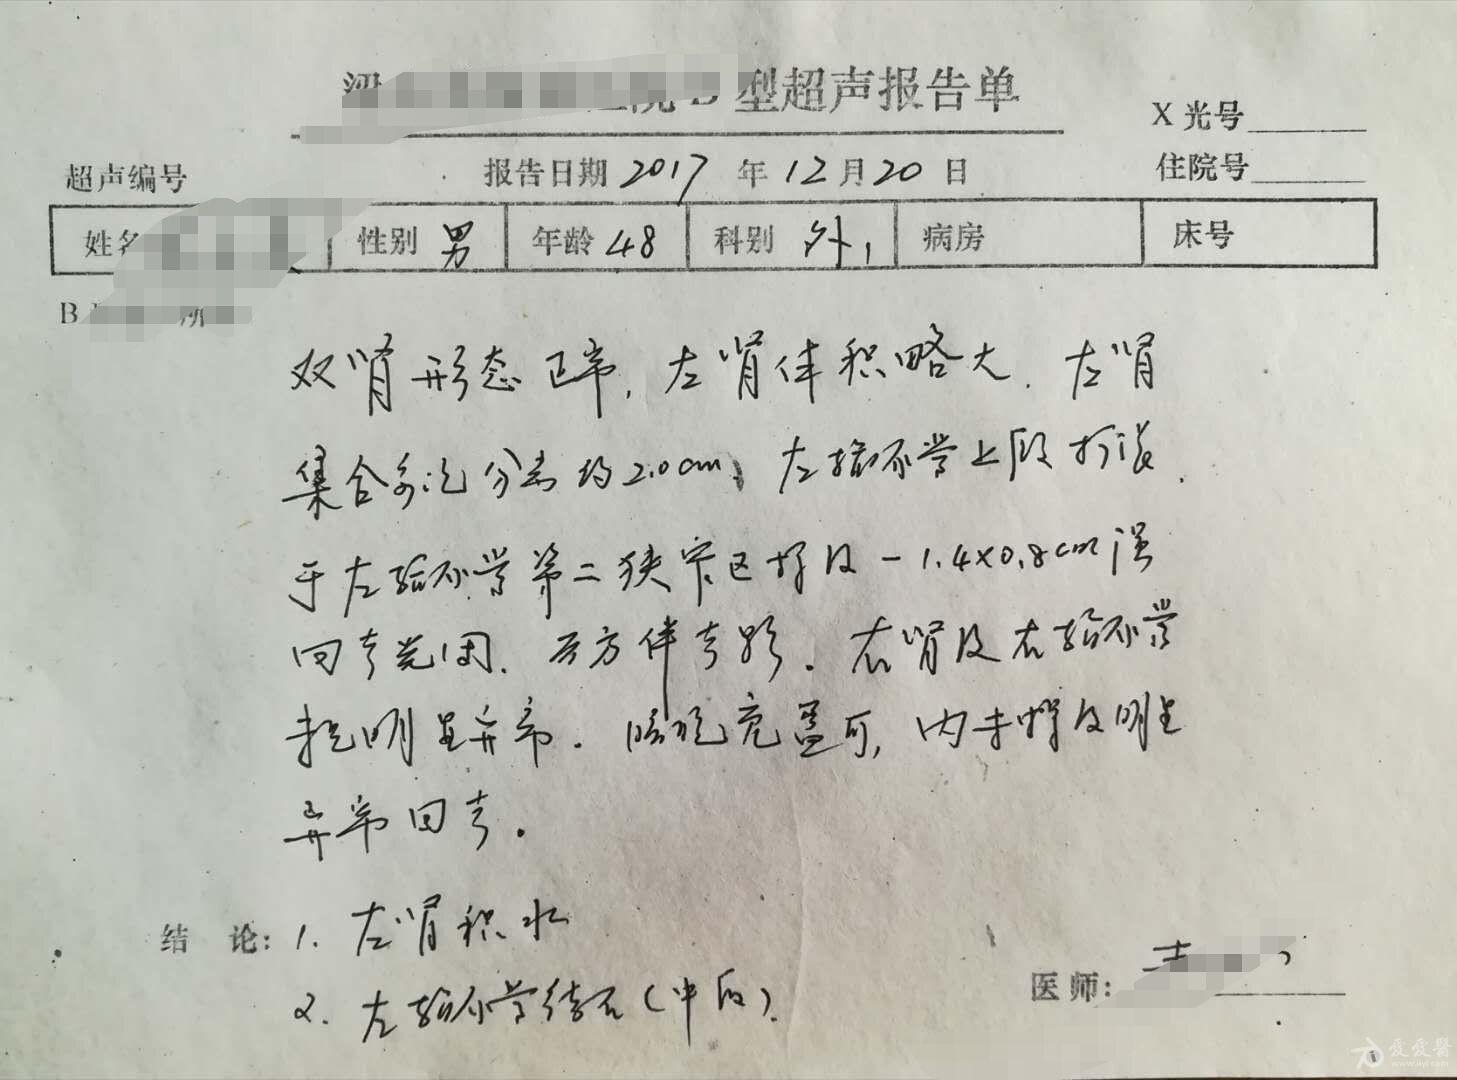 型超声报告单
X光号
超声编号 报告日期 2017 年 12 月 20 日 住院号
姓名 性别 男 年龄 48 科别 外1 病房 床号
B 所
双肾形态正常,左肾体积略大.左肾
集合系统分离约2.0cm,左输尿管上段扩张.
于左输尿管第二狭窄区探及一1.4×0.8cm强
回声光团.后方伴声影.右肾及右输尿管
未见明显异常.膀胱充盈可,内未探及明显
异常回声.
结 论: 1. 左肾积水
2. 左输尿管结石(中段).
医师:
爱爱医
www.iiyi.com